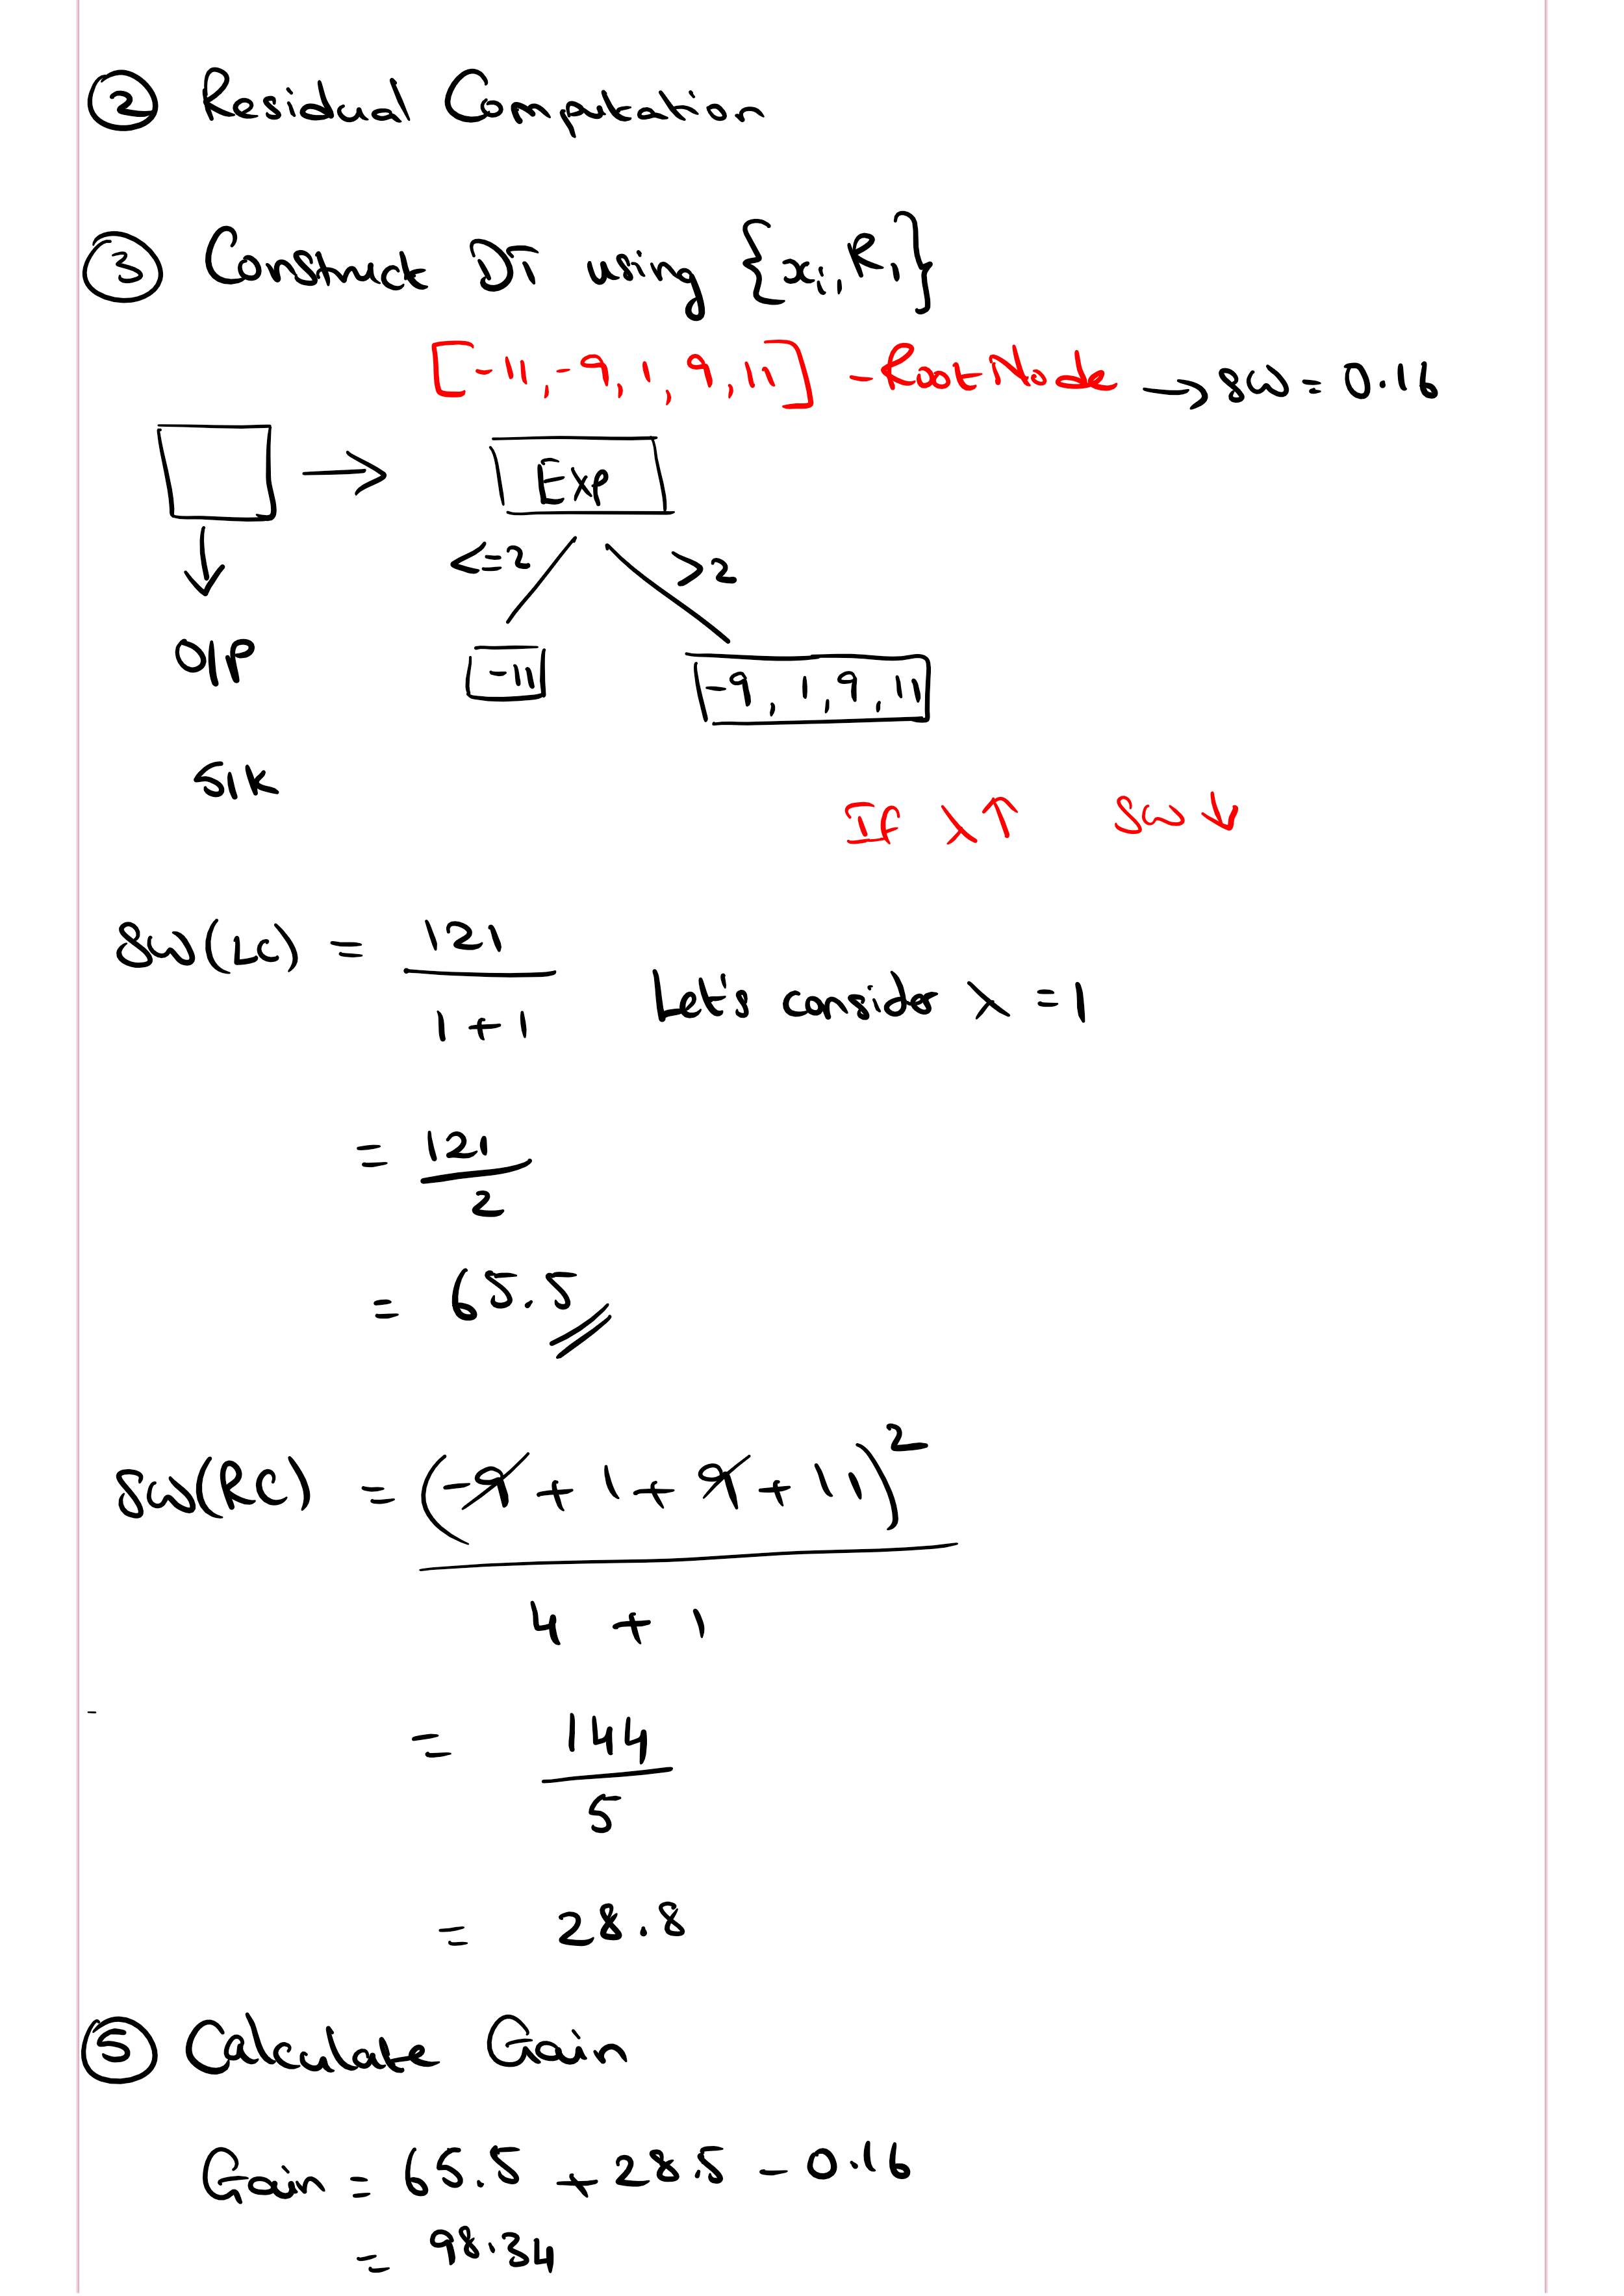 ② Residual Computation
③ Construct DT using {xi, R1}
[-11, -9, 1, 9, 11] - Root Node → SW = 0.16
Exp
<=2 >2
O/P
-11
-9, 1, 9, 11
51K
If λ↑ SW↓
SW(LC) = 121
1 + 1
Let's consider λ = 1
= 121
2
= 65.5
SW(RC) = (-9 + 1 + 9 + 11)²
4 + 1
= 144
5
= 28.8
⑤ Calculate Gain
Gain = 65.5 + 28.5 - 0.16
= 98.34